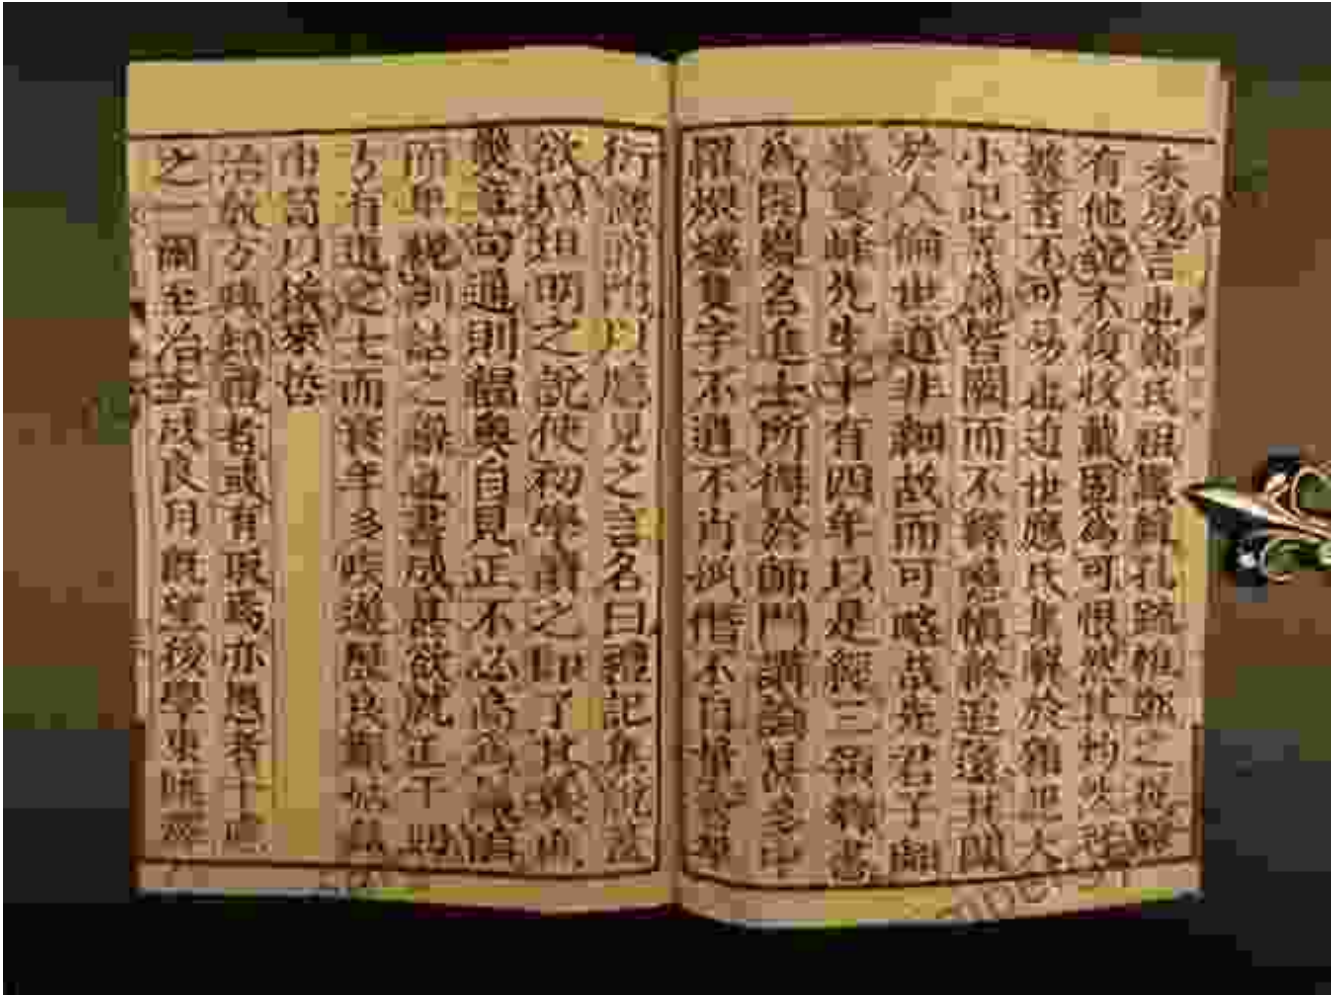 未易言也鄭氏祖讖緯孔疏惟鄭之從雖
有他說不復收載固為可恨然其灼然可
據者不可易也近世應氏集解於雜記大
小記等篇皆闕而不釋噫愼終追遠其關
於人倫世道非細故而可略哉先君子師
事雙峰先生十有四年以是經三領鄉書
為開慶名進士所得於師門講論甚多中
罹煨燼隻字不遺不肖孤僭不自量會萃
衍繹而附以臆見之言名曰禮記集說蓋
欲以坦明之說使初學讀之即了其義庶
幾章句通則縕奧自見正不必高為議論
而卑視訓詁之辭也書成甚欲就正于四
方有道之士而衰年多疾遊歷良艱姑藏
巾笥以俟來哲
治教方興知禮者或有取焉亦愚者千慮
之一爾至治壬戌良月既望後學東匯澤